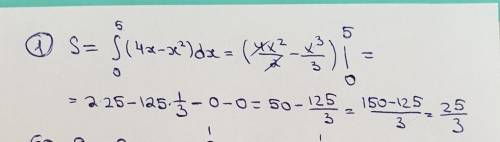 ① S = ∫₀⁵ (4x − x²)dx = (4x²/2 − x³/3) |₀⁵ =
= 2·25 − 125·1/3 − 0 − 0 = 50 − 125/3 = 150−125/3 = 25/3